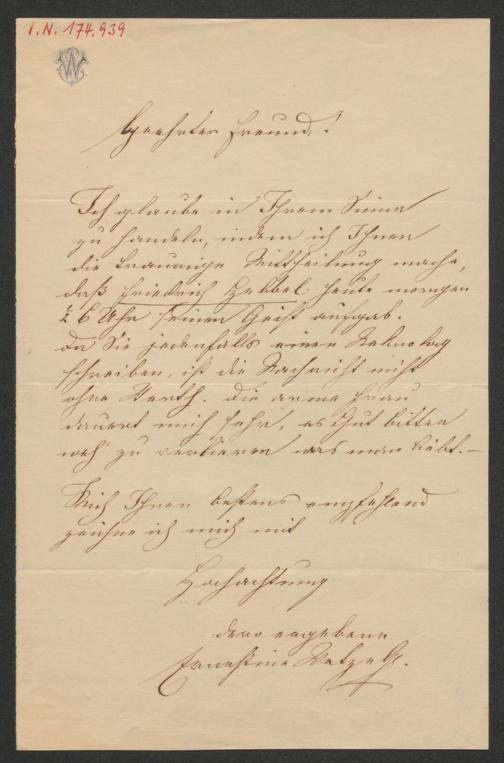 I.N. 174.939
Geehrter Freund!
Ich glaube in Ihrem Sinne
zu handeln, indem ich Ihnen
die traurige Mittheilung mache,
daß Friedrich Hebbel heute morgen
½ 6 Uhr seinen Geist aufgab.
Da Sie jedenfalls einen Nekrolog
schreiben, ist die Nachricht nicht
ohne Werth. Die arme Frau
dauert mich sehr, es thut bitter
weh zu verlieren was man liebt. –
Mich Ihnen bestens empfehlend
zeichne ich mich mit
Hochachtung
dero ergebene
Ernestine